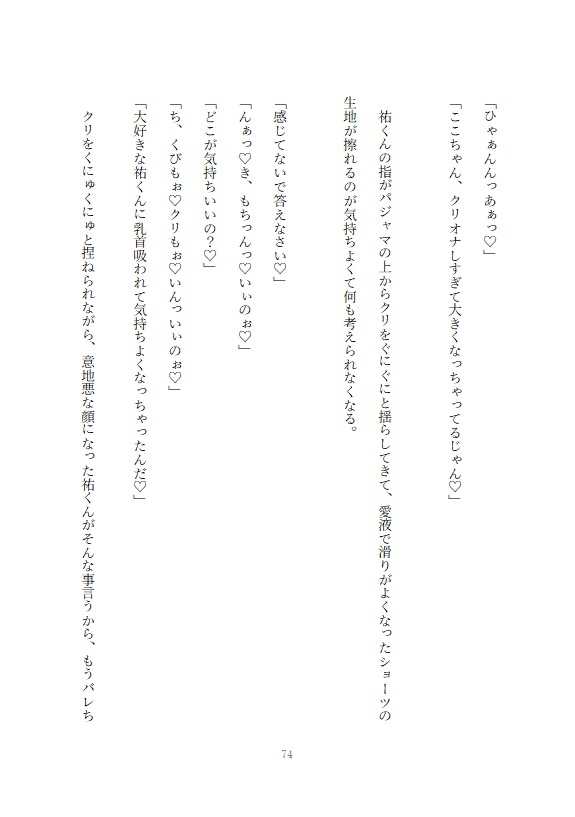 「ひゃぁんんっあぁっ♡」
「ここちゃん、クリオナしすぎて大きくなっちゃってるじゃん♡」
祐くんの指がパジャマの上からクリをぐにぐにと揺らしてきて、愛液で滑りがよくなったショーツの
生地が擦れるのが気持ちよくて何も考えられなくなる。
「感じてないで答えなさい♡」
「んぁっ♡き、もちっんっ♡いぃのぉ♡」
「どこが気持ちいいの?♡」
「ち、くびもぉ♡クリもぉ♡いんっいぃのぉ♡」
「大好きな祐くんに乳首吸われて気持ちよくなっちゃったんだ♡」
クリをくにゅくにゅと捏ねられながら、意地悪な顔になった祐くんがそんな事言うから、もうバレち
74